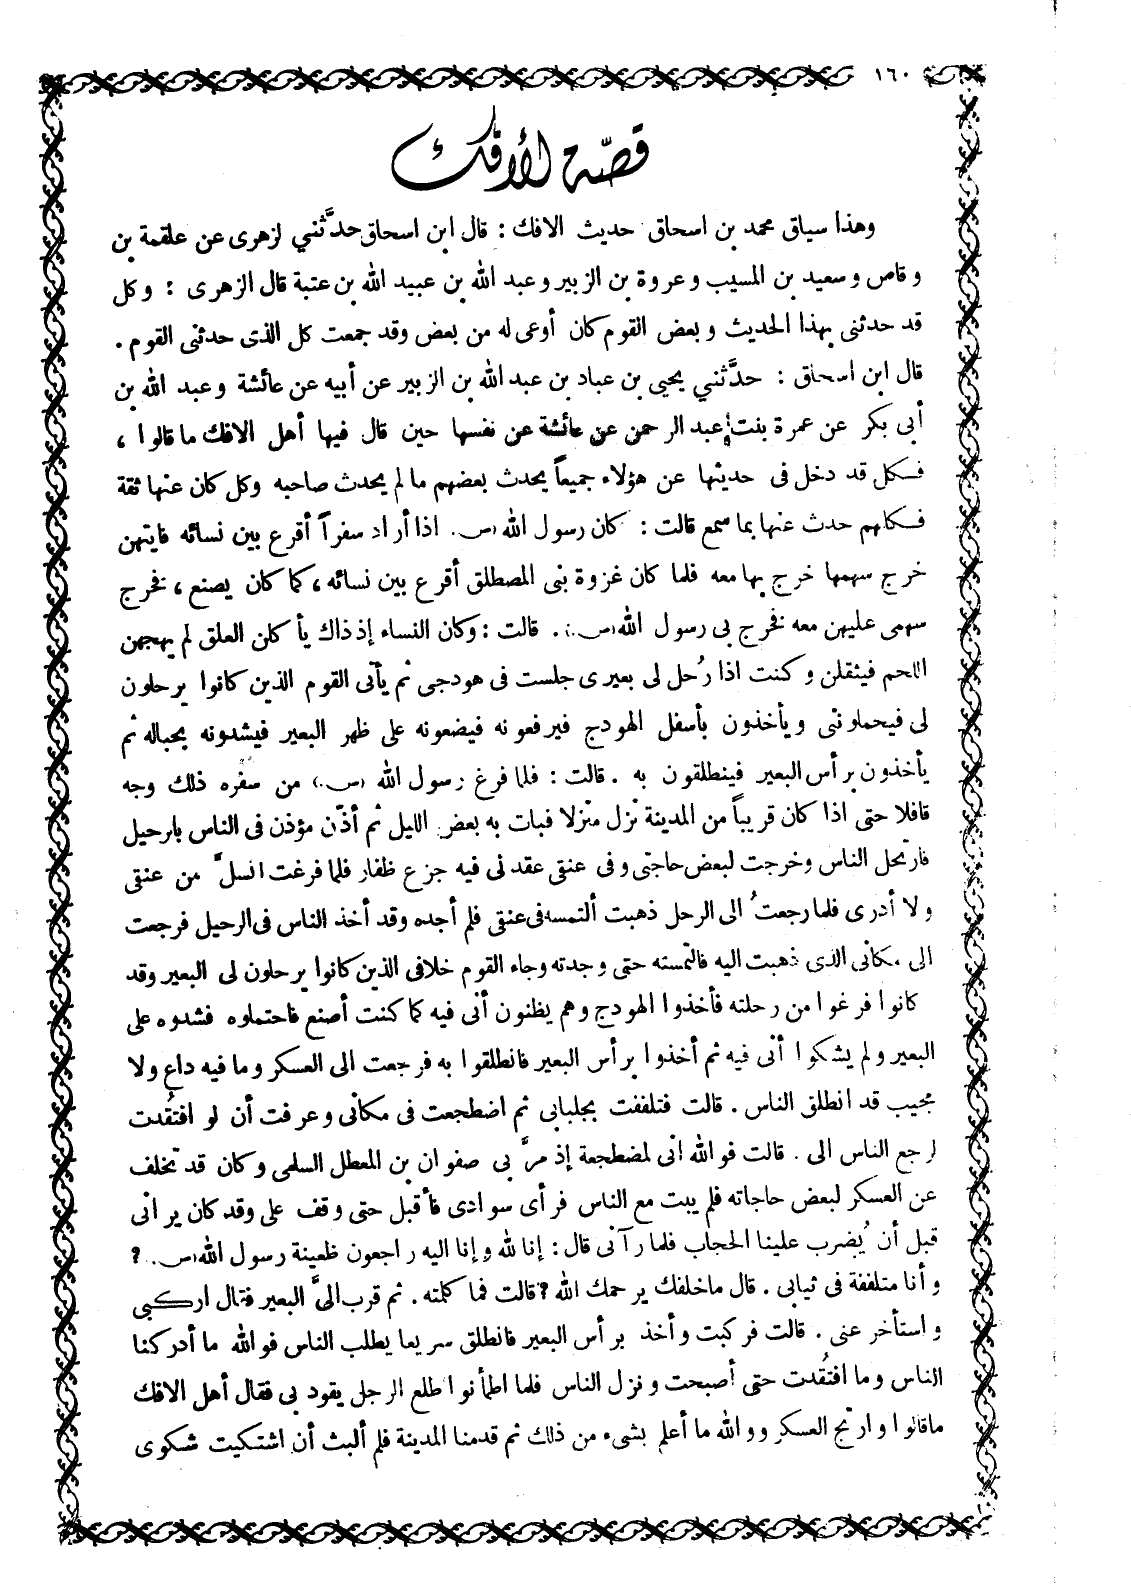 ١٦٠
قصة الأفك
وهذا سياق محمد بن اسحاق حديث الافك : قال ابن اسحاق حدَّثني لزهرى عن علقمة بن
وقاص وسعيد بن المسيب وعروة بن الزبير وعبد الله بن عبيد الله بن عتبة قال الزهرى : وكل
قد حدثنى بهذا الحديث وبعض القوم كان أوعى له من بعض وقد جمعت كل الذى حدثنى القوم .
قال ابن اسحاق : حدَّثني يحيى بن عباد بن عبد الله بن الزبير عن أبيه عن عائشة وعبد الله بن
أبى بكر عن عمرة بنت عبد الرحمن عن عائشة عن نفسها حين قال فيها أهل الافك ما قالوا ،
فكل قد دخل فى حديثها عن هؤلاء جميعاً يحدث بعضهم ما لم يحدث صاحبه وكل كان عنها ثقة
فكلهم حدث عنها بما سمع قالت : كان رسول الله (ص.) اذا أراد سفراً أقرع بين نسائه فايتهن
خرج سهمها خرج بها معه فلما كان غزوة بنى المصطلق أقرع بين نسائه ، كما كان يصنع ، فخرج
سهمى عليهن معه فخرج بى رسول الله (ص.) . قالت : وكان النساء إذ ذاك يأكلن العلق لم يهجهن
اللحم فيثقلن وكنت اذا رُحل لى بعيرى جلست فى هودجى ثم يأتى القوم الذين كانوا يرحلون
لى فيحملوننى ويأخذون بأسفل الهودج فيرفعونه فيضعونه على ظهر البعير فيشدونه بحباله ثم
يأخذون برأس البعير فينطلقون به . قالت : فلما فرغ رسول الله (ص.) من سفره ذلك وجه
قافلا حتى اذا كان قريباً من المدينة نزل منزلا فبات به بعض الليل ثم أذّن مؤذن فى الناس بالرحيل
فارتحل الناس وخرجت لبعض حاجتى وفى عنقى عقد لى فيه جزع ظفار فلما فرغت انسلَّ من عنقى
ولا أدرى فلما رجعتُ الى الرحل ذهبت ألتمسه فى عنقى فلم أجده وقد أخذ الناس فى الرحيل فرجعت
الى مكانى الذى ذهبت اليه فالتمسته حتى وجدته وجاء القوم خلافى الذين كانوا يرحلون لى البعير وقد
كانوا فرغوا من رحلته فأخذوا الهودج وهم يظنون أنى فيه كما كنت أصنع فاحتملوه فشدوه على
البعير ولم يشكوا أنى فيه ثم أخذوا برأس البعير فانطلقوا به فرجعت الى العسكر وما فيه داع ولا
مجيب قد انطلق الناس . قالت فتلففت بجلبابى ثم اضطجعت فى مكانى وعرفت أن لو افتُقدت
لرجع الناس الى . قالت فوالله انى لمضطجعة إذ مرَّ بى صفوان بن المعطل السلمى وكان قد تخلف
عن العسكر لبعض حاجاته فلم يبت مع الناس فرأى سوادى فأقبل حتى وقف على وقد كان يرانى
قبل أن يُضرب علينا الحجاب فلما رآنى قال : إنا لله وإنا اليه راجعون ظعينة رسول الله (ص.) ؟
وأنا متلففة فى ثيابى . قال ما خلفك يرحمك الله ؟ قالت فما كلمته . ثم قرب الىَّ البعير فقال اركبى
واستأخر عنى . قالت فركبت وأخذ برأس البعير فانطلق سريعا يطلب الناس فوالله ما أدركنا
الناس وما افتُقدت حتى أصبحت ونزل الناس فلما اطمأنوا طلع الرجل يقود بى فقال أهل الافك
ما قالوا وارتج العسكر ووالله ما أعلم بشىء من ذلك ثم قدمنا المدينة فلم ألبث أن اشتكيت شكوى